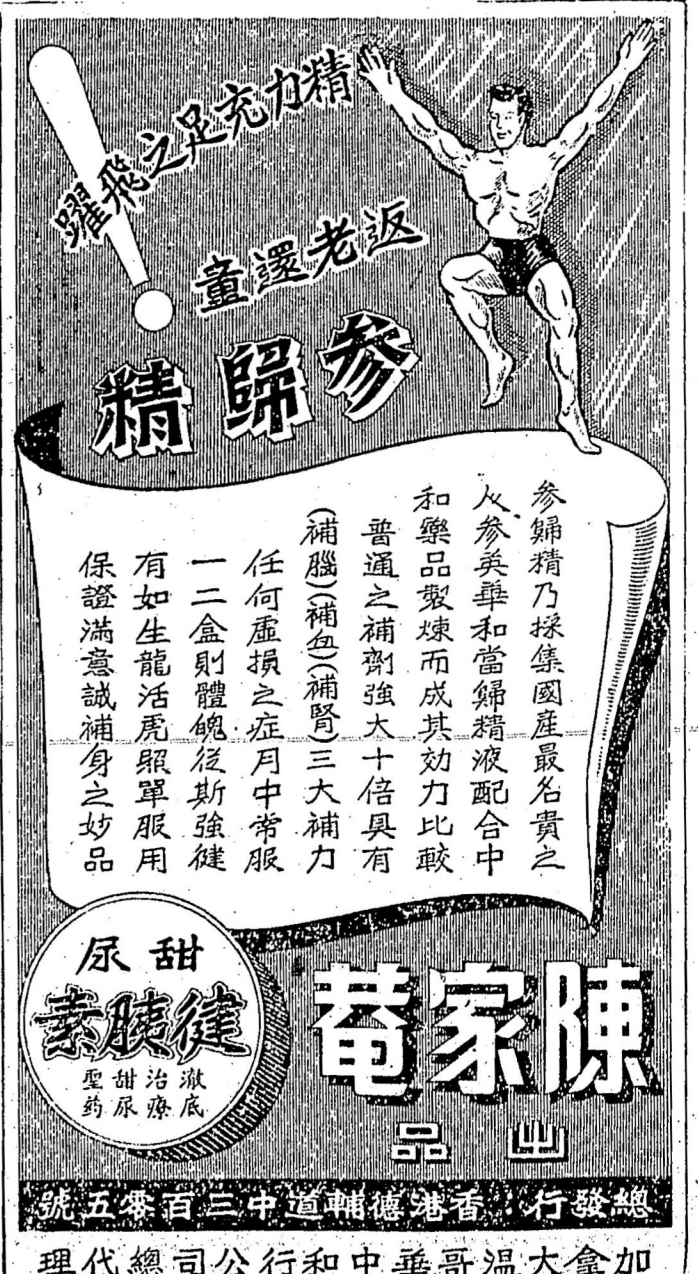 精力充足之飛躍
返老還童
参歸精
参歸精乃採集國產最名貴之
人参英華和當歸精液配合中
和藥品製煉而成其効力比較
普通之補劑強大十倍具有
(補腦)(補血)(補腎)三大補力
任何虛損之症月中常服
一二盒則體魄從斯強健
有如生龍活虎照單服用
保證滿意誠補身之妙品
甜尿
健胰素
澈底
治療
甜尿
聖药
陳家菴
出品
總發行：香港德輔道中三百零五號
加拿大温哥華中和行公司總代理